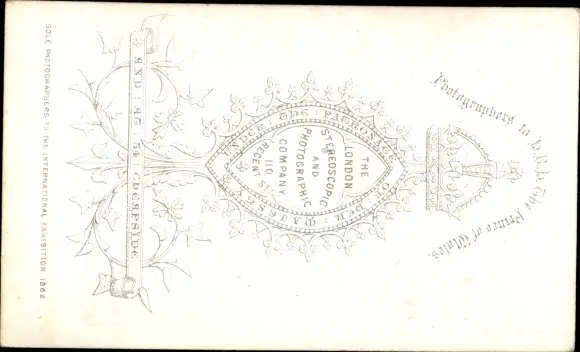 Photographers to H.R.H. The Prince of Wales.
UNDER THE PATRONAGE OF HER MAJESTY
THE
LONDON
STEREOSCOPIC
AND
PHOTOGRAPHIC
COMPANY
110
REGENT ST
AND AT 54 CHEAPSIDE
SOLE PHOTOGRAPHERS TO THE INTERNATIONAL EXHIBITION 1862